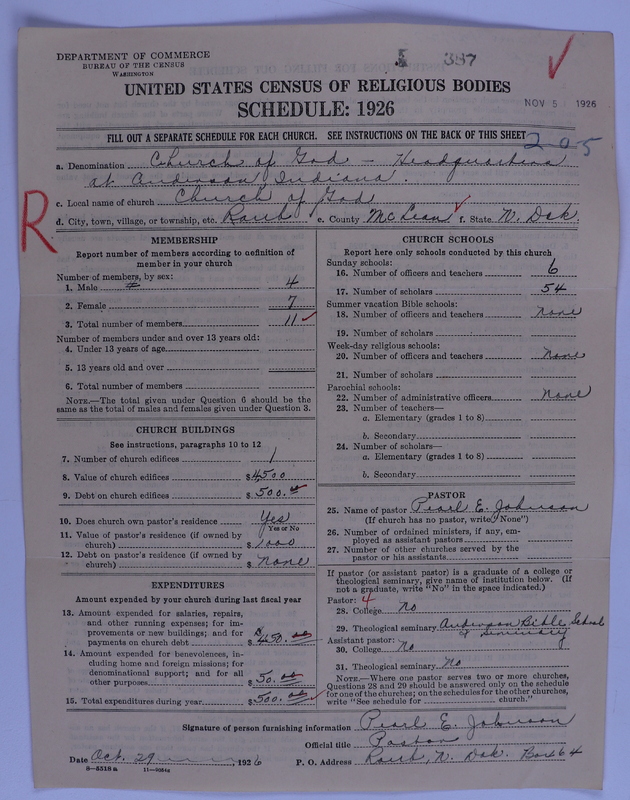 DEPARTMENT OF COMMERCE
BUREAU OF THE CENSUS
WASHINGTON
387
UNITED STATES CENSUS OF RELIGIOUS BODIES
SCHEDULE: 1926
NOV 5 1926
FILL OUT A SEPARATE SCHEDULE FOR EACH CHURCH. SEE INSTRUCTIONS ON THE BACK OF THIS SHEET
205
a. Denomination Church of God - Headquarters
at Anderson Indiana.
c. Local name of church Church of God
d. City, town, village, or township, etc. Raub e. County McLean f. State N. Dak
R
MEMBERSHIP
Report number of members according to definition of
member in your church
Number of members, by sex:
1. Male 4
2. Female 7
3. Total number of members 11
Number of members under and over 13 years old:
4. Under 13 years of age
5. 13 years old and over
6. Total number of members
NOTE.—The total given under Question 6 should be the
same as the total of males and females given under Question 3.
CHURCH BUILDINGS
See instructions, paragraphs 10 to 12
7. Number of church edifices 1
8. Value of church edifices $4500
9. Debt on church edifices $500.00
10. Does church own pastor's residence Yes
Yes or No
11. Value of pastor's residence (if owned by
church) $1000
12. Debt on pastor's residence (if owned by
church) $none
EXPENDITURES
Amount expended by your church during last fiscal year
13. Amount expended for salaries, repairs,
and other running expenses; for im-
provements or new buildings; and for
payments on church debt $450.00
14. Amount expended for benevolences, in-
cluding home and foreign missions; for
denominational support; and for all
other purposes $50.00
15. Total expenditures during year $500.00
CHURCH SCHOOLS
Report here only schools conducted by this church
Sunday schools:
16. Number of officers and teachers 6
17. Number of scholars 54
Summer vacation Bible schools:
18. Number of officers and teachers none
19. Number of scholars
Week-day religious schools:
20. Number of officers and teachers none
21. Number of scholars
Parochial schools:
22. Number of administrative officers none
23. Number of teachers—
a. Elementary (grades 1 to 8)
b. Secondary
24. Number of scholars—
a. Elementary (grades 1 to 8)
b. Secondary
PASTOR
25. Name of pastor Pearl E. Johnson
(If church has no pastor, write "None")
26. Number of ordained ministers, if any, em-
ployed as assistant pastors
27. Number of other churches served by the
pastor or his assistants
If pastor (or assistant pastor) is a graduate of a college or
theological seminary, give name of institution below. (If
not a graduate, write "No" in the space indicated.)
Pastor: 4
28. College no
29. Theological seminary Anderson Bible School
& Seminary
Assistant pastor:
30. College no
31. Theological seminary no
NOTE.—Where one pastor serves two or more churches,
Questions 28 and 29 should be answered only on the schedule
for one of the churches; on the schedules for the other churches,
write "See schedule for church."
Signature of person furnishing information Pearl E. Johnson
Official title Pastor
Date Oct. 29, 1926 P. O. Address Raub, N. Dak. Box 64
8—5518a 11—9051g